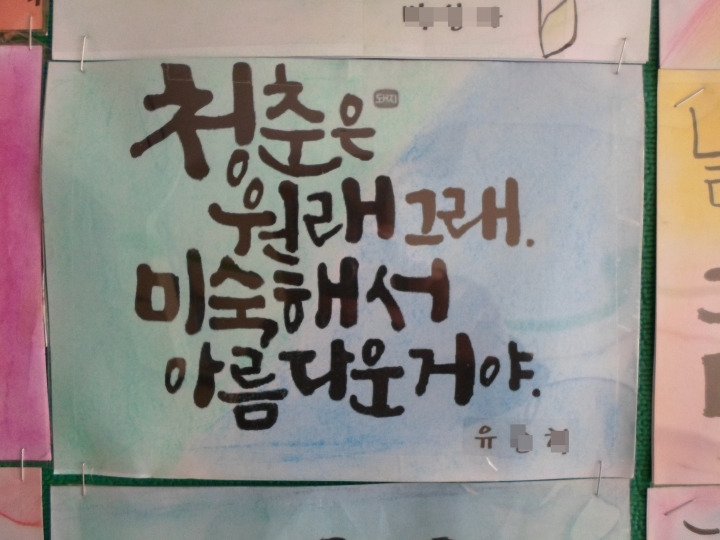 청춘은
원래 그래.
미숙해서
아름다운거야.
유